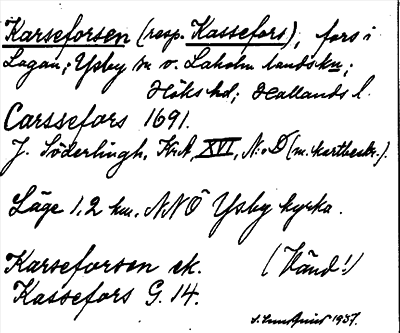 Karseforsen (resp. Kassefors), fors i
Lagan; Ysby sn v. Laholm landskn;
Höks hd; Hallands l.
Carssefors 1691.
J. Söderlingh, KrA, XVI, N:o D (m. kartbeskr.).
Läge 1,2 km. NNÖ Ysby kyrka.
Karseforsen ek. (Vänd!)
Kassefors G. 14.
S. Lundquist 1937.